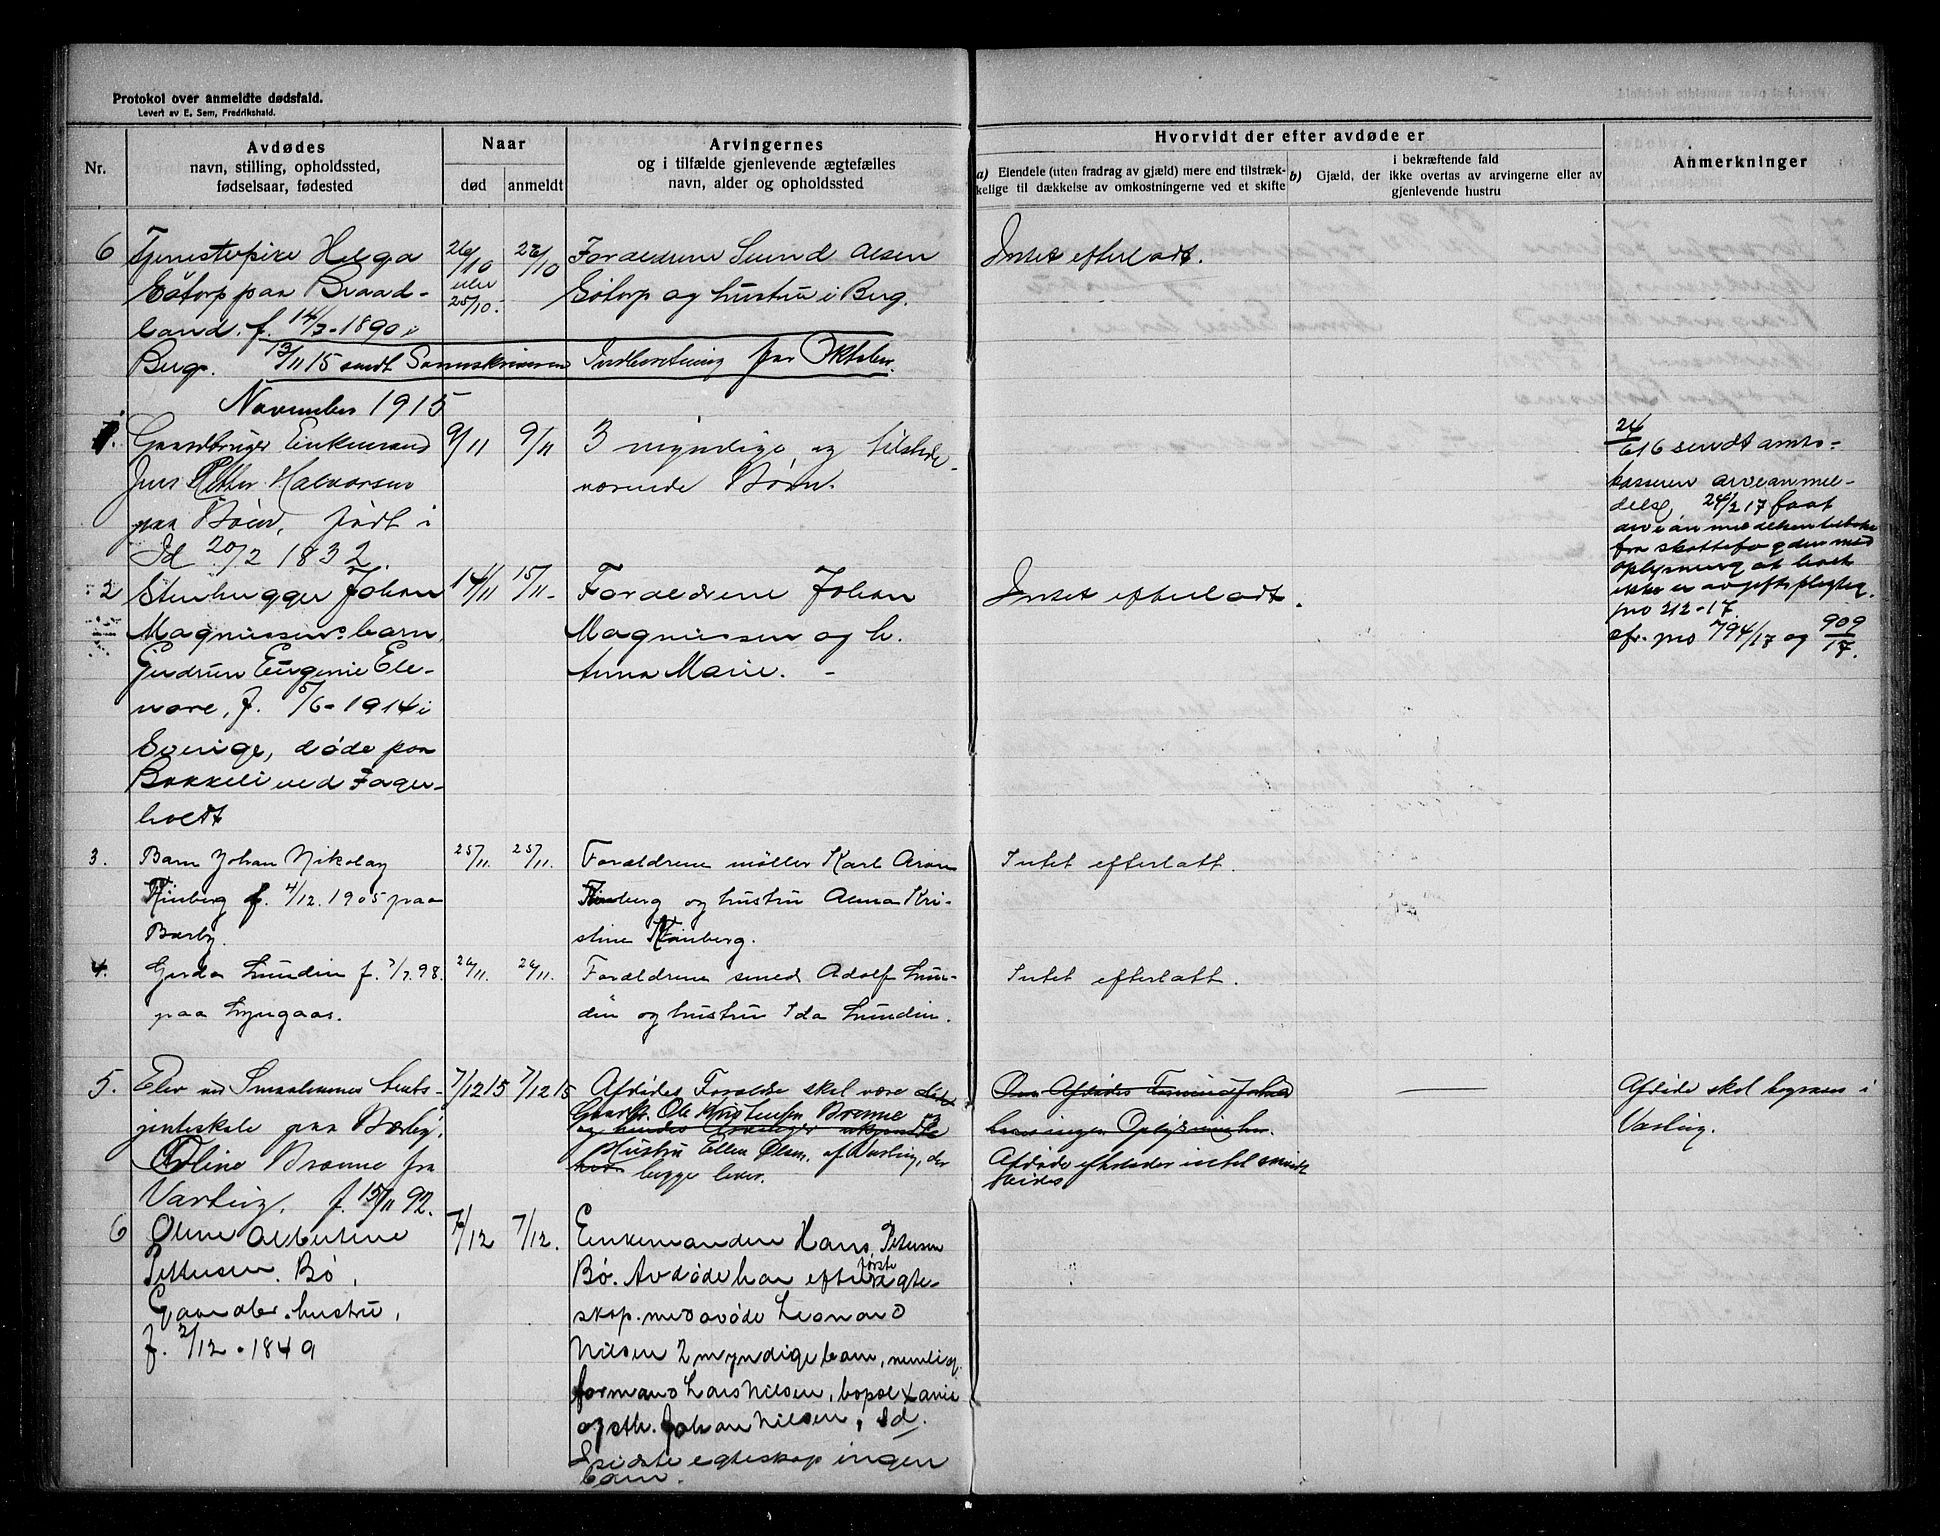 Protokol over anmeldte dødsfald.
Levert av E. Sem, Fredrikshald.
Nr.
Avdødes
navn, stilling, opholdssted,
fødselsaar, fødested
Naar
død
anmeldt
Arvingernes
og i tilfælde gjenlevende ægtefælles
navn, alder og opholdssted
Hvorvidt der efter avdøde er
a) Eiendele (uten fradrag av gjæld) mere end tilstræk-
kelige til dækkelse av omkostningerne ved et skifte
b) Gjæld, der
i bekræftende fald
ikke overtas av arvingerne eller av
gjenlevende hustru
Anmerkninger
6
Tjenestepike Helga
Götorp paa Braad-
land, f. 14/3-1890 i
Berg.
26/10
eller
25/10.
26/10
Forældrene Svend Olsen
Götorp og hustru i Berg.
Intet efterladt.
13/11 15 sendt Sorenskriveren Indberetning for Oktober.
November 1915
1.
Gaardbruger Enkemand
Jens Petter Halvorsen
paa Böen, født i
Id 20/2 1832.
9/11
9/11
3 myndige og tilstede-
værende Börn.
24/6 16 sendt amts-
kasseren arveanmel-
delse 24/2 17 faat
arveanmeldelsen tilbake
fra skattefogden med
oplysning at boet
ikke er avgiftspligtig
pro 212-17
cfr. pro 794/17 og 909/17.
2
Stenhugger Johan
Magnussens barn
Gudrun Eugenie Ele-
nore, f. 5/6-1914 i
Sverige, døde paa
Bakkeli ved Fager-
holdt
14/11
15/11-
Forældrene Johan
Magnussen og h.
Anna Marie. -
Intet efterladt.
3.
Barn Johan Nikolay
f. 4/12. 1905 paa
Bærby.
25/11.
25/11.
Forældrene møller Karl Aron
og hustru Anna Kri-
stine
Intet efterlatt.
4.
Gerda Lundin f. 7/7.98.
paa Lyngaas.
26/11.
26/11.
Forældrene smed Adolf Lun-
din og hustru Ida Lundin.
Intet efterlatt.
5.
Elev ved Smaalenenes Amts-
jenteskole paa Bærby,
Oline Brænne fra
Varteig. f. 15/11 92.
7/12 15
7/12 15
Afdødes Forældre skal være
Gaardb. Ole Kristensen Brænne
og
Hustru Ellen Olsen, af Varteig, der
begge lever.
Om Afdødes Formuesforhold
haves ingen Oplysninger.
Afdøde efterlader intet
Afdøde skal begraves i
Varteig.
6
Oline Albertine
Pettersen Bö,
Gaardbr. hustru,
f. 2/12 - 1849
7/12
7/12.
Enkemanden Hans Petersen
Bö. Avdøde har efter første ægte-
skap med avdöde Leonard
Nilsen 2 myndige barn, nemlig
formand Lars Nilsen, bopæl
og sth. Johan Nilsen, Id.
I sidste egteskap ingen
barn.